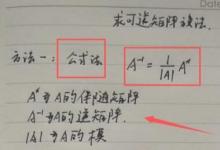 Date
求可逆矩阵方法.
方法一: 公式法 A⁻¹ = 1/|A| A*
A* 为 A的伴随矩阵
A⁻¹ 为 A的逆矩阵.
|A| 为 A的模